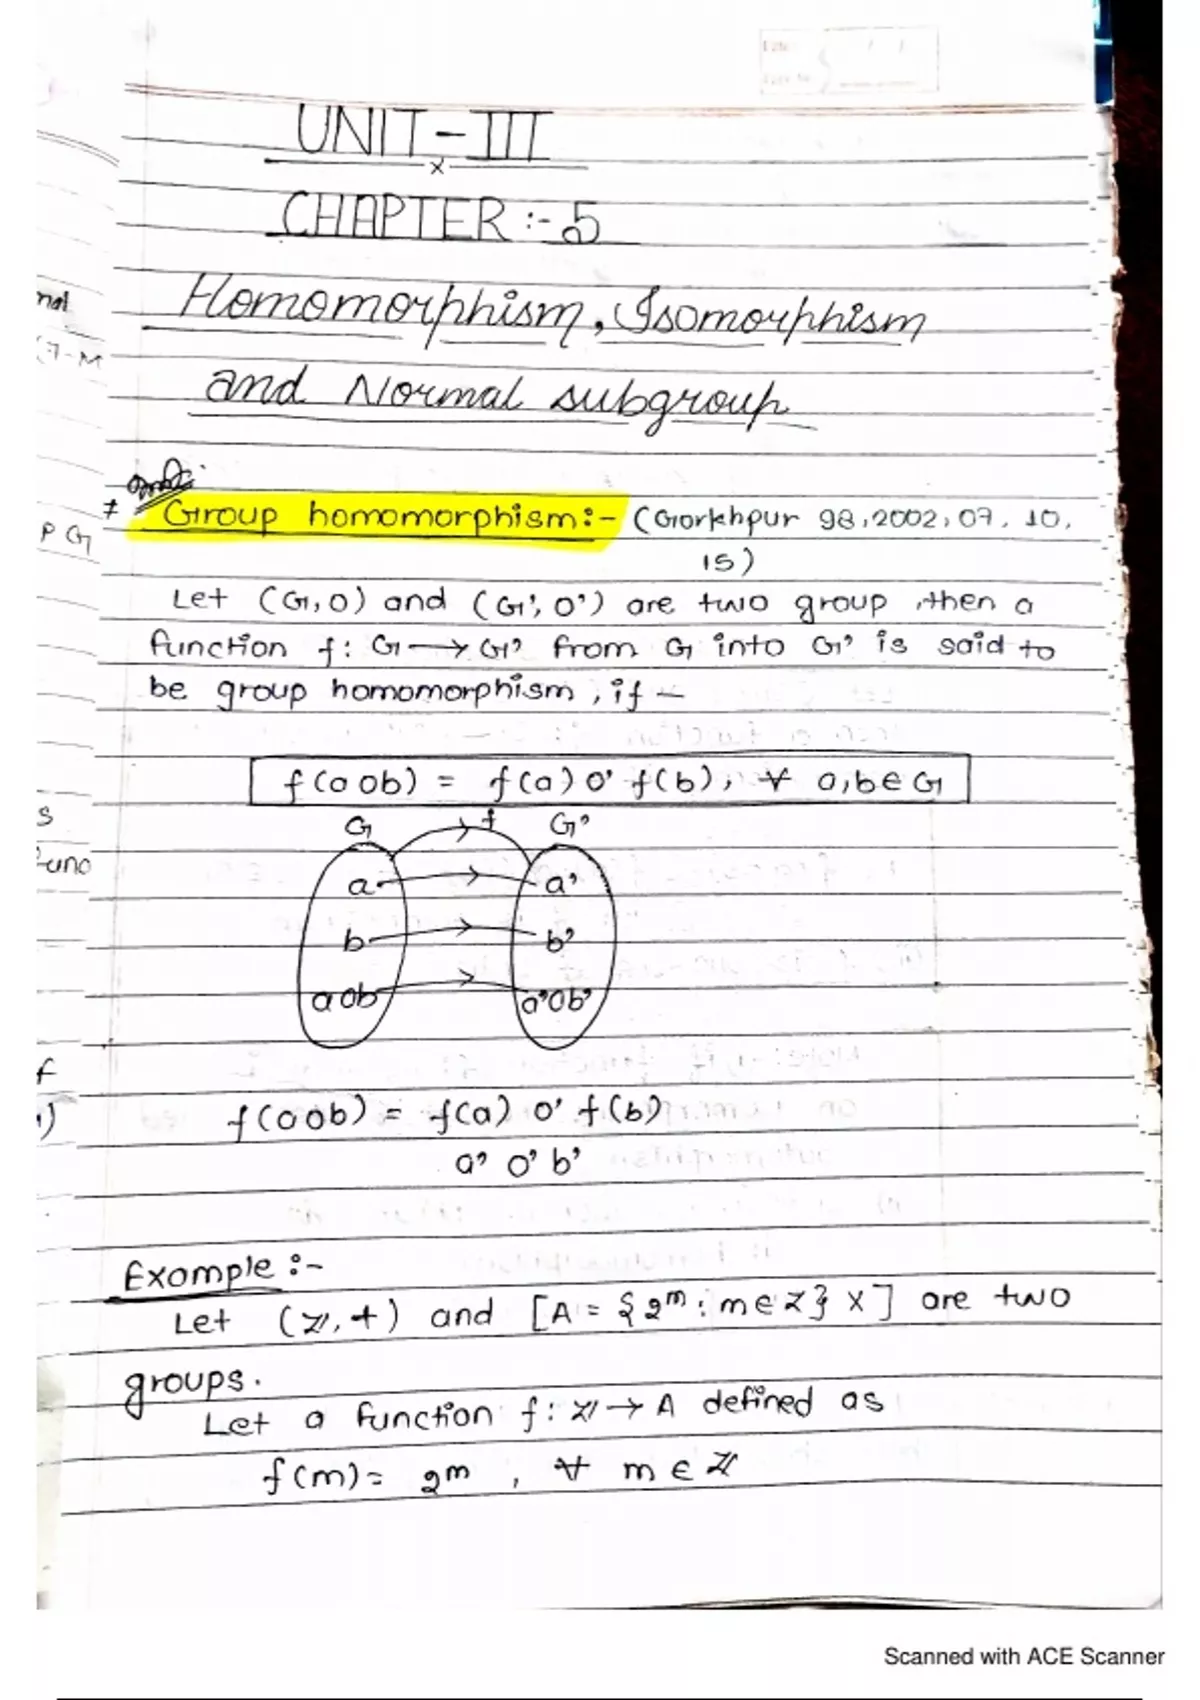 UNIT-III
x
CHAPTER :- 5
Homomorphism, Isomorphism
and Normal subgroup
* Group homomorphism:- (Gorkhpur 98, 2002, 07, 10,
15)
Let (G, O) and (G', O') are two group, then a
function f: G → G' from G into G' is said to
be group homomorphism, if -
f(a o b) = f(a) o' f(b), ∀ a, b ∈ G
G f G'
a a'
b b'
a o b a' o b'
f(a o b) = f(a) o' f(b)
a' o' b'
Example :-
Let (ℤ, +) and [A = {2^m : m ∈ Z} X] are two
groups.
Let a function f : ℤ → A defined as
f(m) = 2^m , ∀ m ∈ ℤ
nal
(7-M
P G
s
func
f
Scanned with ACE Scanner